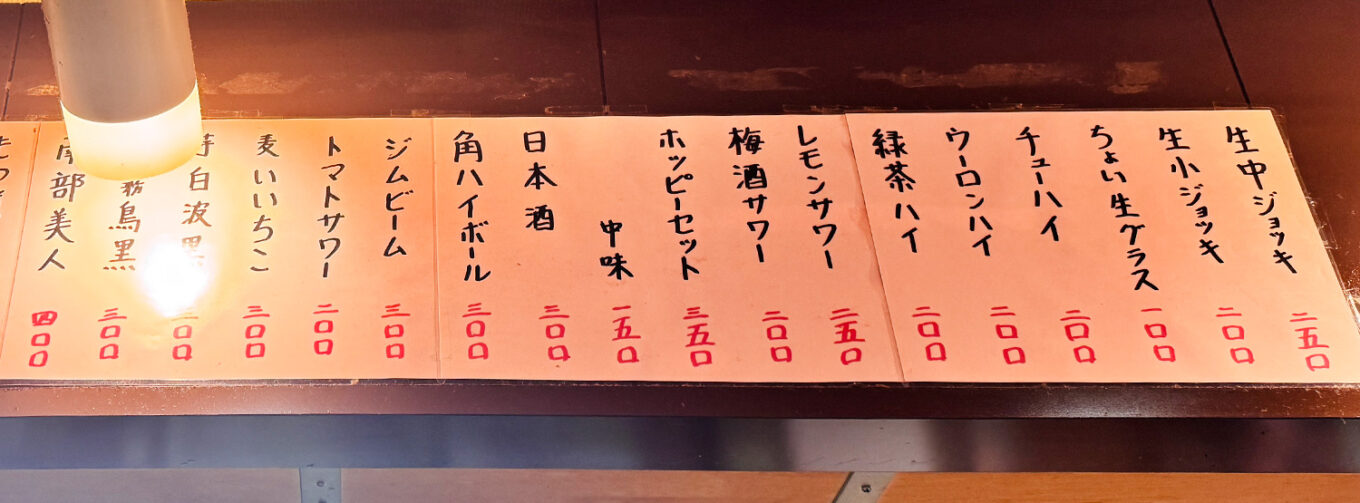 生中ジョッキ 二五〇
生小ジョッキ 二〇〇
ちょい生グラス 一〇〇
チューハイ 二〇〇
ウーロンハイ 二〇〇
緑茶ハイ 二〇〇
レモンサワー 二五〇
梅酒サワー 二〇〇
ホッピーセット 三五〇
中味 一五〇
日本酒 三〇〇
角ハイボール 三〇〇
ジムビーム 三〇〇
トマトサワー 二〇〇
麦いいちこ 三〇〇
白波黒 三〇〇
島黒 三〇〇
南部美人 四〇〇